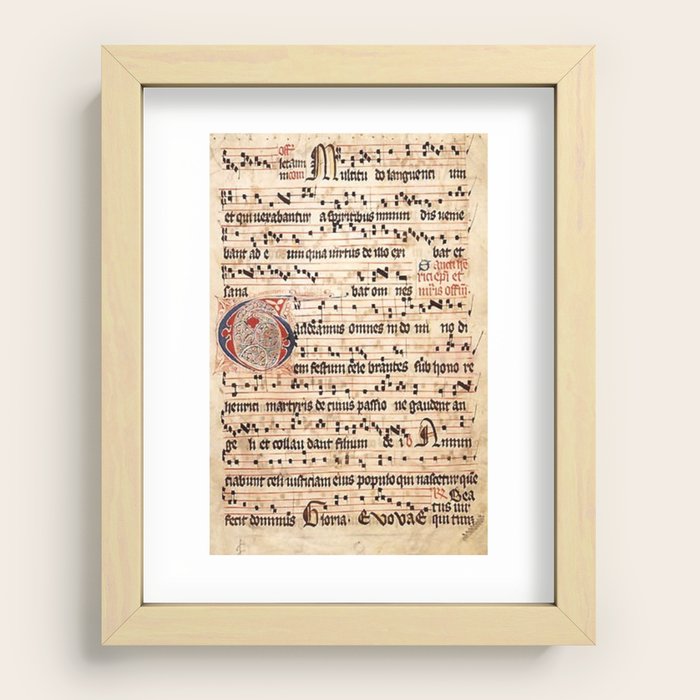 Off
letam Multitu do languenti um
m com
et qui vexabantur a spiritibus inmun dis venie
bant ad e um quia virtus de illo exi bat et
Sancti he
rici epi et
sana bat om nes mris offm.
Gaudeamus omnes in do mi no di
em festum cele brantes sub hono re
henrici martyris de cuius passio ne gaudent an
ge li et collau dant filium de i Annun
ciabunt celi iusticiam eius populo qui nascetur que
Bea
fecit dominus Gloria. Evovae tus vir
qui tim